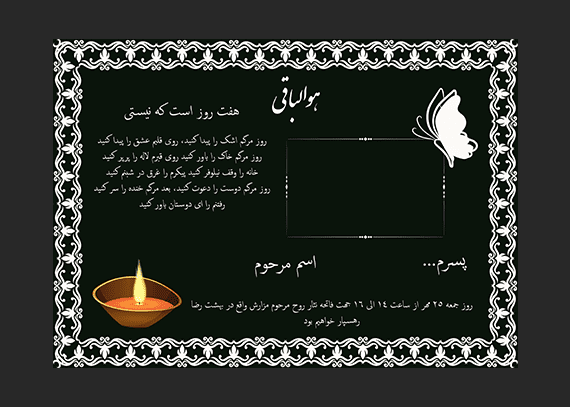 هوالباقی
هفت روز است که نیستی
روز مرگم اشک را پیدا کنید، روی قلبم عشق را پیدا کنید
روز مرگم خاک را باور کنید روی قبرم لاله را پرپر کنید
خانه را وقف نیلوفر کنید پیکرم را غرق در شبنم کنید
روز مرگم دوست را دعوت کنید، بعد مرگم خنده را سر کنید
رفتنم را ای دوستان باور کنید
پسرم...
اسم مرحوم
روز جمعه ۲۵ مهر از ساعت ۱۴ الی ۱۶ جهت فاتحه نثار روح مرحوم مزارش واقع در بهشت رضا
رهسپار خواهیم بود